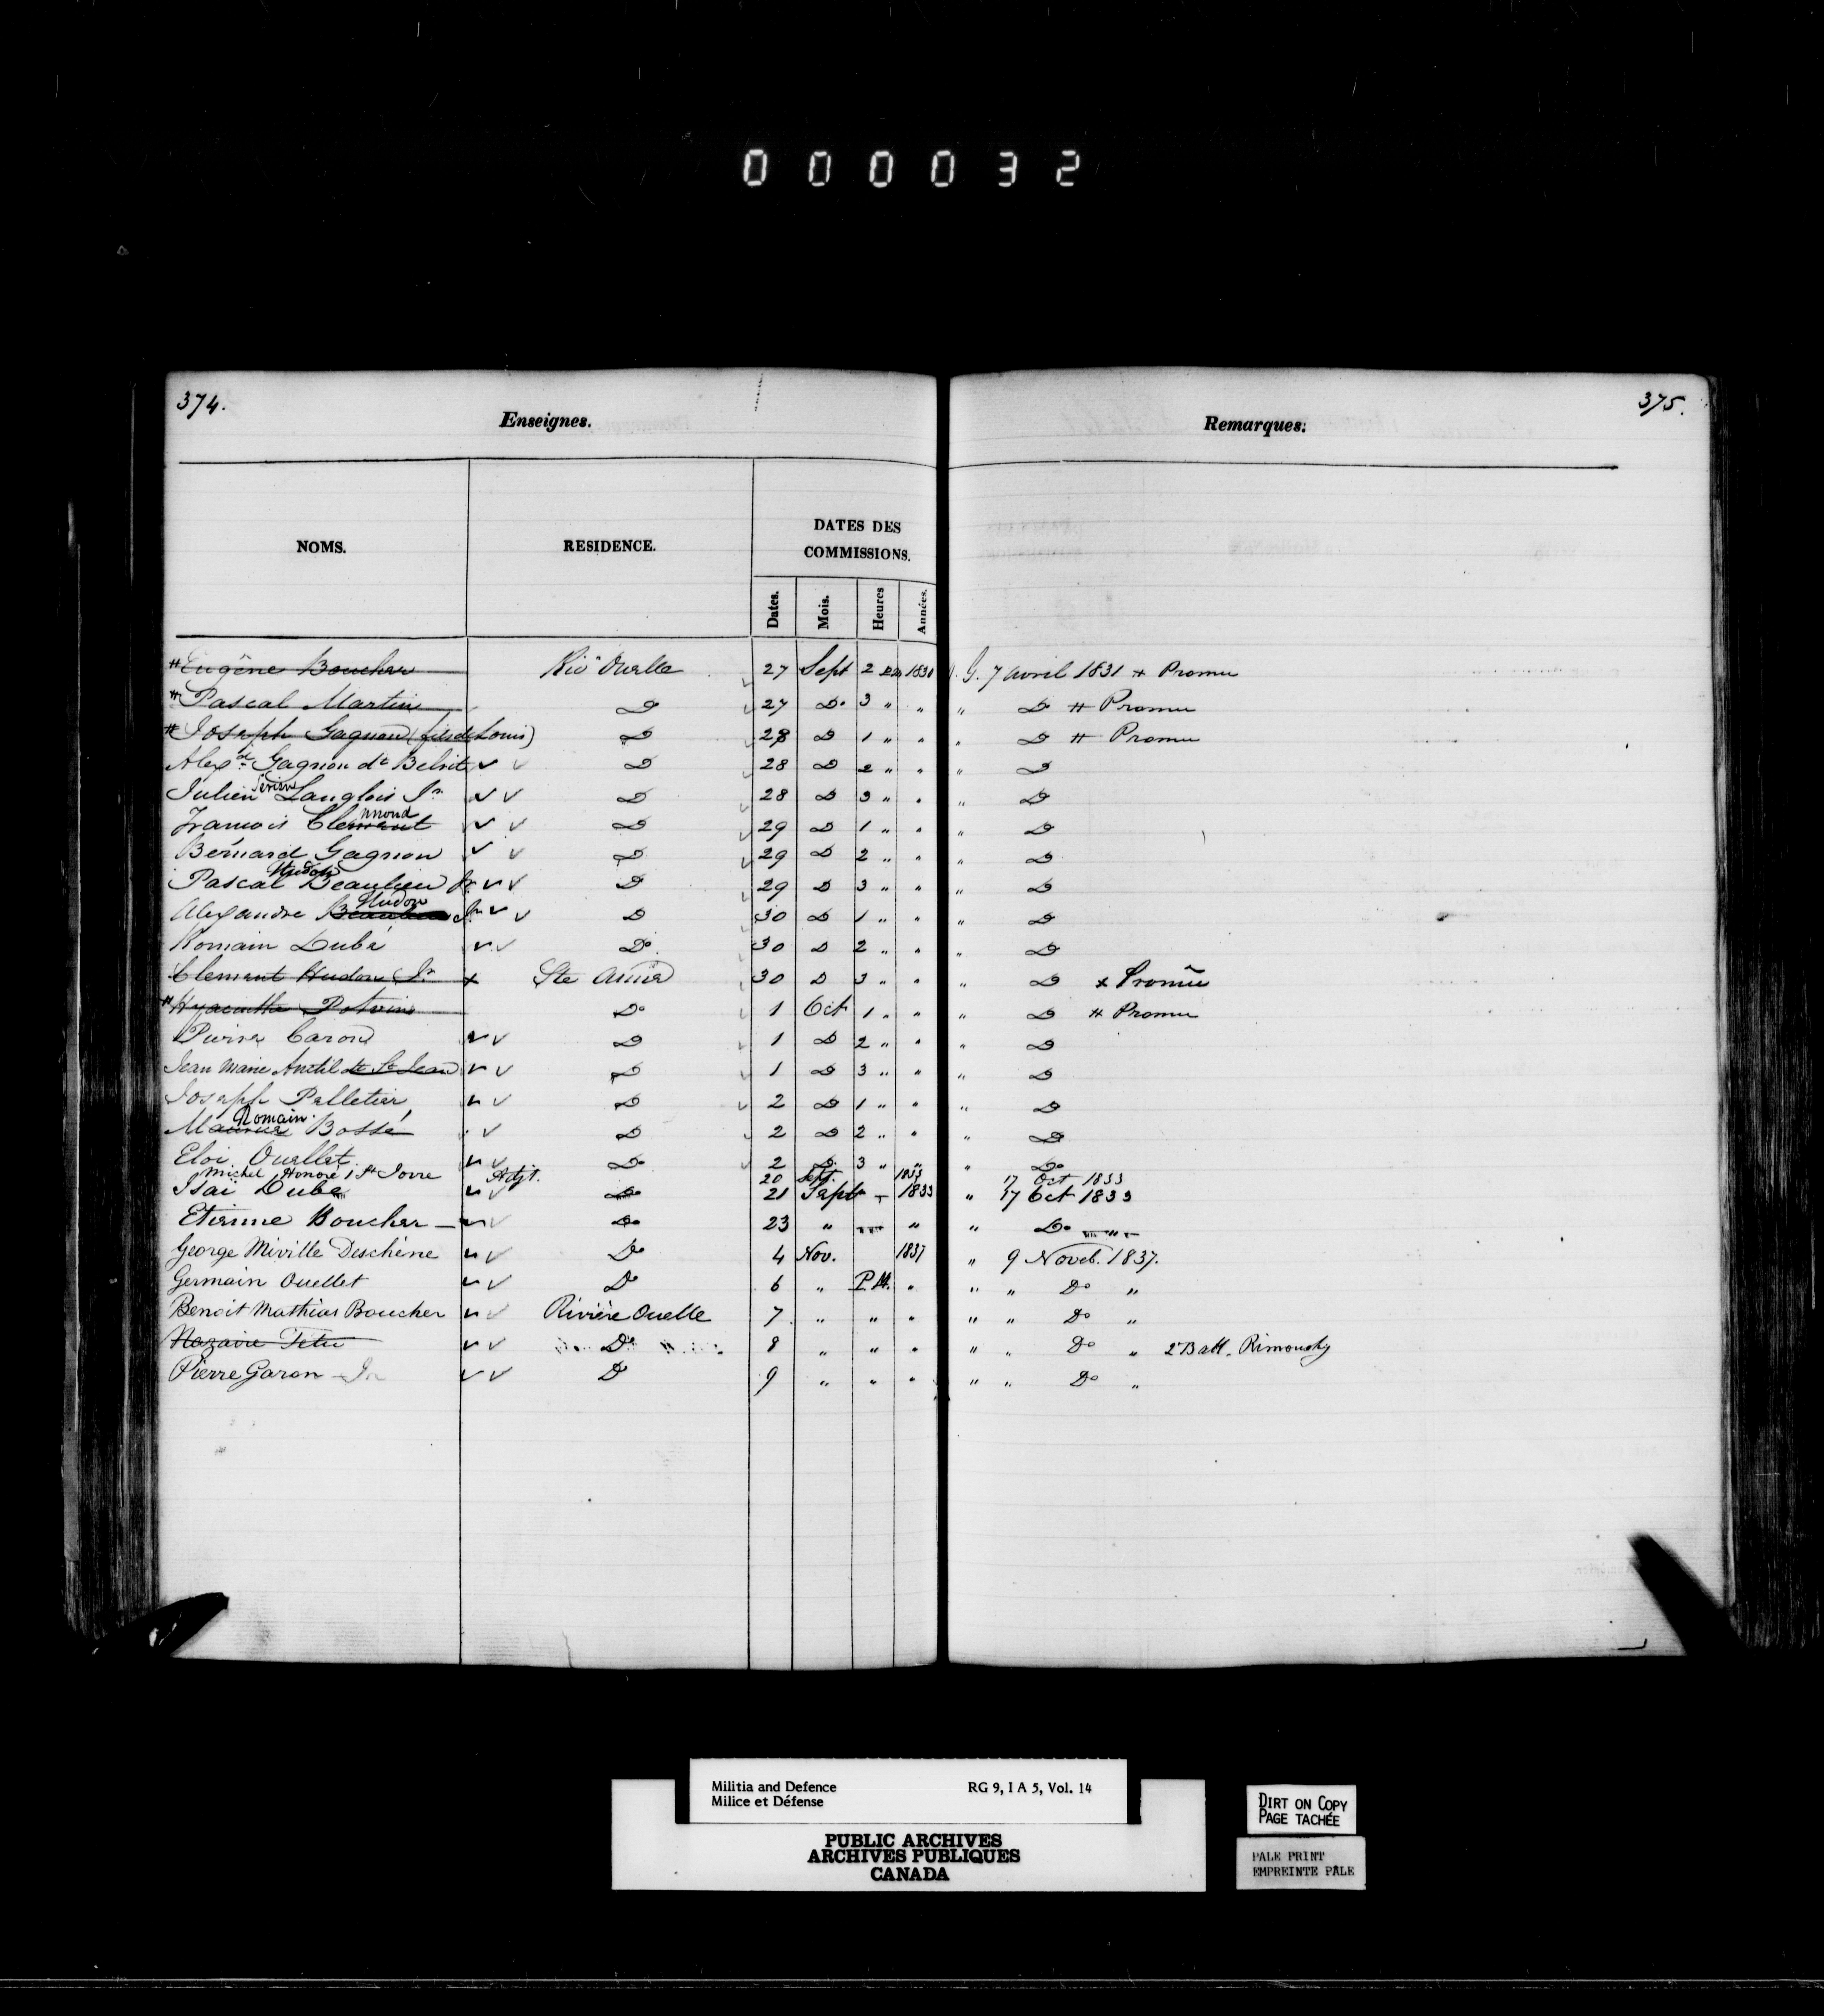 000032
374.
Enseignes.
Remarques.
375.
NOMS.
RESIDENCE.
DATES DES
COMMISSIONS.
Dates.
Mois.
Heures
Années.
# Eugène Boucher Riv Ouelle 27 Sept 2 1830 G. 7 avril 1831 + Promu
# Pascal Martin D 27 Do 3 " " " D # Promu
# Joseph Gagnon (fils de Louis) D 28 D 1 " " " D # Promu
Alexd. Gagnon dt Belsit D 28 D 2 " " " D
Julien Langlois Jr. D 28 D 3 " " " D
mond
Francois Clement D 29 D 1 " " " D
Bernard Gagnon D 29 D 2 " " " D
Hudon
Pascal Beaulieu Jr D 29 D 3 " " " D
Hudon
Alexandre Beaulieu Jr D 30 D 1 " " " D
Romain Dubé Do 30 D 2 " " " D
Clement Hudon Jr x Ste Anne 30 D 3 " " " D x Promu
# Hyacinthe Potvin Do 1 Oct 1 " " " D # Promu
Pierre Caron D 1 D 2 " " " D
Jean Marie Anctil dt St Jean D 1 D 3 " " " D
Joseph Pelletier D 2 D 1 " " " D
Romain
Maurice Bossé D 2 D 2 " " " D
Eloi Ouellet Do 2 D 3 " " " Do
Michel Honoré St Jorre Adjt. 20 Sept. 1833 17 Oct 1833
Isaï Dubé Do 21 Sept 1833 " 17 Oct 1833
Etienne Boucher Do 23 " " " Do
George Miville Deschêne Do 4 Nov. 1837 " 9 Novb. 1837.
Germain Ouellet D 6 " P.M. " " " Do "
Benoit Mathias Boucher Rivière Ouelle 7 " " " " " Do "
Nazaire Tetu Do 8 " " " " " Do " 2 Batt. Rimousky
Pierre Garon Jr D 9 " " " " " Do "
Militia and Defence RG 9, I A 5, Vol. 14
Milice et Défense
PUBLIC ARCHIVES
ARCHIVES PUBLIQUES
CANADA
DIRT ON COPY
PAGE TACHÉE
PALE PRINT
EMPREINTE PÂLE